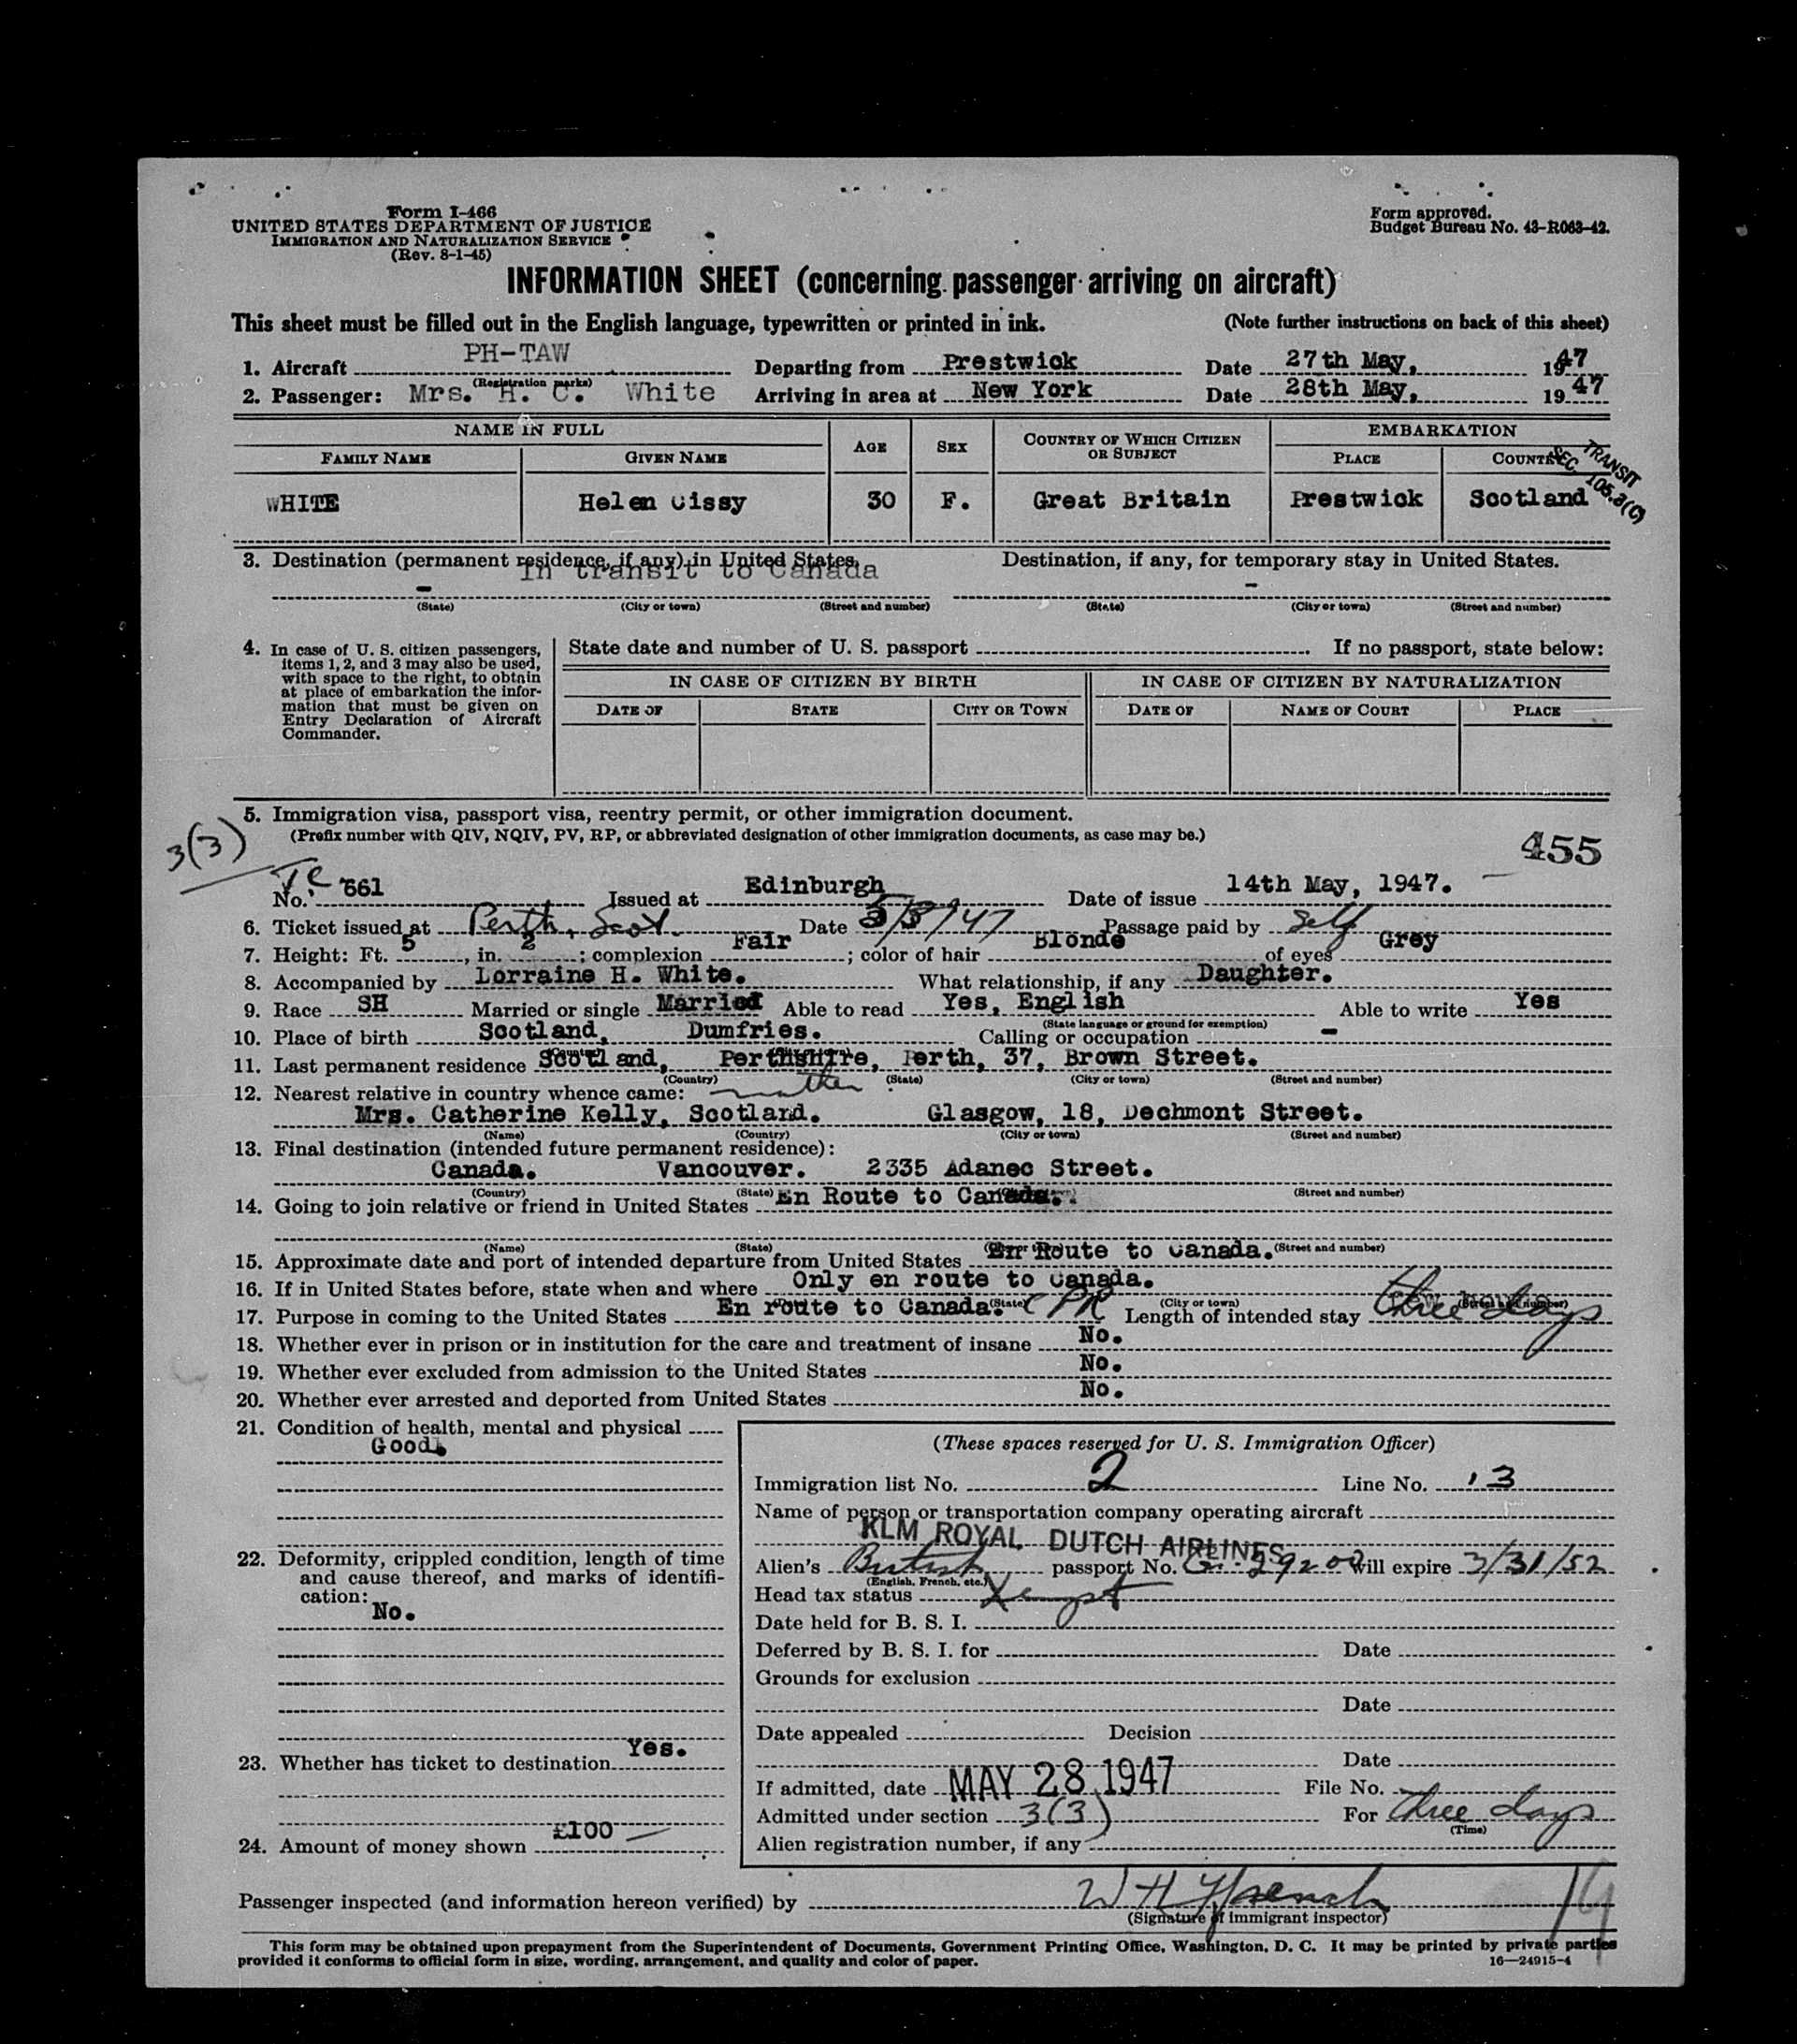 Form I-466
UNITED STATES DEPARTMENT OF JUSTICE
IMMIGRATION AND NATURALIZATION SERVICE
(Rev. 8-1-45)
Form approved.
Budget Bureau No. 43-R063-42.
INFORMATION SHEET (concerning passenger arriving on aircraft)
This sheet must be filled out in the English language, typewritten or printed in ink. (Note further instructions on back of this sheet)
1. Aircraft PH-TAW Departing from Prestwick Date 27th May, 1947
(Registration marks)
2. Passenger: Mrs. H. C. White Arriving in area at New York Date 28th May, 1947
NAME IN FULL AGE SEX COUNTRY OF WHICH CITIZEN OR SUBJECT EMBARKATION
FAMILY NAME GIVEN NAME PLACE COUNTRY
TRANSIT
SEC. 105.3(C)
WHITE Helen Cissy 30 F. Great Britain Prestwick Scotland
3. Destination (permanent residence, if any) in United States. Destination, if any, for temporary stay in United States.
In transit to Canada
- -
(State) (City or town) (Street and number) (State) (City or town) (Street and number)
4. In case of U. S. citizen passengers, items 1, 2, and 3 may also be used, with space to the right, to obtain at place of embarkation the information that must be given on Entry Declaration of Aircraft Commander.
State date and number of U. S. passport . If no passport, state below:
IN CASE OF CITIZEN BY BIRTH IN CASE OF CITIZEN BY NATURALIZATION
DATE OF STATE CITY OR TOWN DATE OF NAME OF COURT PLACE
5. Immigration visa, passport visa, reentry permit, or other immigration document.
(Prefix number with QIV, NQIV, PV, RP, or abbreviated designation of other immigration documents, as case may be.)
3(3)
455
No. TC 661 Issued at Edinburgh Date of issue 14th May, 1947.
6. Ticket issued at Perth, Scot. Date 5/3/47 Passage paid by Self
7. Height: Ft. 5, in. 2; complexion Fair; color of hair Blonde of eyes Grey
8. Accompanied by Lorraine H. White. What relationship, if any Daughter.
9. Race SH Married or single Married Able to read Yes, English Able to write Yes
(State language or ground for exemption)
10. Place of birth Scotland, Dumfries. Calling or occupation -
11. Last permanent residence Scotland, Perthshire, Perth, 37, Brown Street.
(Country) (State) (City or town) (Street and number)
12. Nearest relative in country whence came: mother
Mrs. Catherine Kelly, Scotland. Glasgow, 18, Dechmont Street.
(Name) (Country) (City or town) (Street and number)
13. Final destination (intended future permanent residence):
Canada. Vancouver. 2335 Adanec Street.
(Country) (State) (Street and number)
14. Going to join relative or friend in United States En Route to Canada.
(Name) (State) (Street and number)
15. Approximate date and port of intended departure from United States En Route to Canada.
16. If in United States before, state when and where Only en route to Canada.
(State) (City or town) (Street and number)
17. Purpose in coming to the United States En route to Canada. CPR Length of intended stay three days
18. Whether ever in prison or in institution for the care and treatment of insane No.
19. Whether ever excluded from admission to the United States No.
20. Whether ever arrested and deported from United States No.
21. Condition of health, mental and physical
Good.
22. Deformity, crippled condition, length of time and cause thereof, and marks of identification:
No.
23. Whether has ticket to destination Yes.
24. Amount of money shown £100
(These spaces reserved for U. S. Immigration Officer)
Immigration list No. 2 Line No. 13
Name of person or transportation company operating aircraft
KLM ROYAL DUTCH AIRLINES
Alien's British passport No. will expire 3/31/52
(English, French, etc.)
Head tax status Xempt
Date held for B. S. I.
Deferred by B. S. I. for Date
Grounds for exclusion
Date
Date appealed Decision
Date
If admitted, date MAY 28 1947 File No.
Admitted under section 3(3) For three days
(Time)
Alien registration number, if any
Passenger inspected (and information hereon verified) by W H French
(Signature of immigrant inspector)
14
This form may be obtained upon prepayment from the Superintendent of Documents, Government Printing Office, Washington, D. C. It may be printed by private parties
provided it conforms to official form in size, wording, arrangement, and quality and color of paper. 16—24915-4